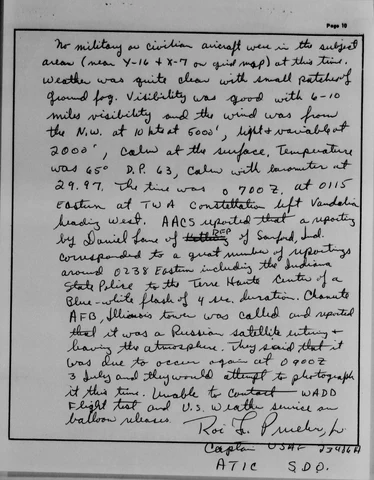 Page 10
No military or civilian aircraft were in the subject
areas (near Y-16 & X-7 on grid map) at this time.
Weather was quite clear with small patches of
ground fog. Visibility was good with 6-10
miles visibility and the wind was from
the N.W. at 10 kts at 5000', light & variable at
2000', calm at the surface. Temperature
was 65° D.P. 63, calm with barometer at
29.97. The time was 0700Z. at 0115
Eastern at TWA Constellation left Vandalia
heading West. AACS reported that a reporting
by Daniel Lane of DEP of Sanford, Ind.
corresponded to a great number of reportings
around 0238 Eastern including the Indiana
State Police to the Terre Haute Center of a
Blue-white flash of 4 sec. duration. Chanute
AFB, Illinois tower was called and reported
that it was a Russian satellite entering &
leaving the atmosphere. They said that it
was due to occur again at 0900Z
3 July and they would attempt to photograph
it this time. Unable to contact WADD
Flight test and U.S. Weather service on
balloon releases.
Roi F. Jr
Captain USAF
ATIC S.D.O.